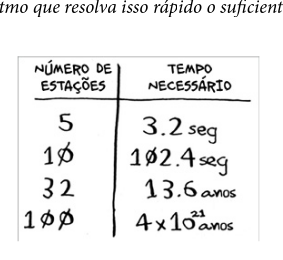 tmo que resolva isso rápido o suficient
NÚMERO DE ESTAÇÕES TEMPO NECESSÁRIO
5 3.2 seg
10 102.4 seg
32 13.6 anos
100 4x10²¹ anos